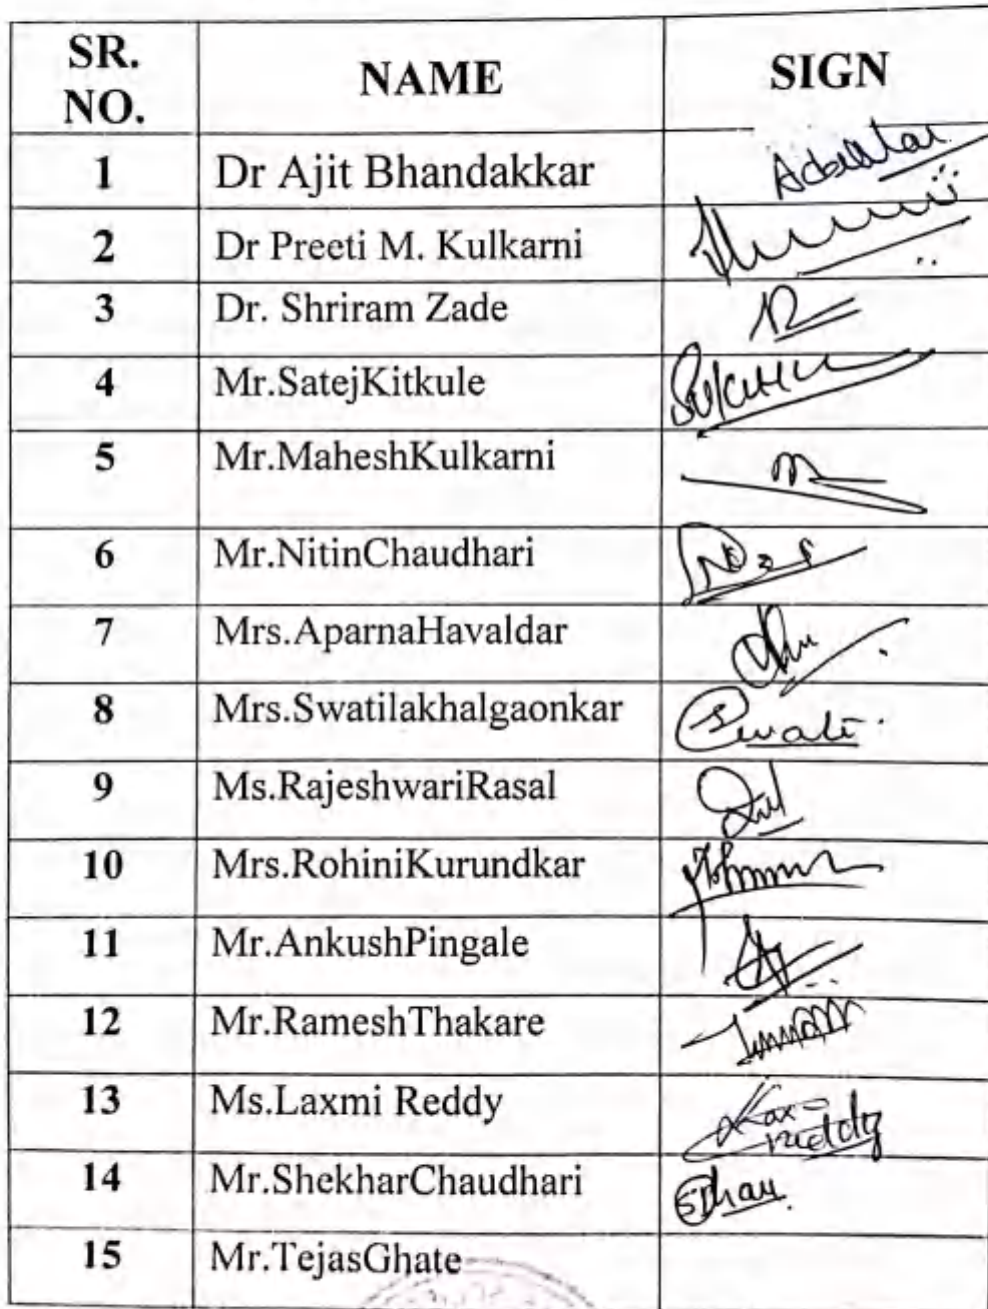 SR. NO. NAME SIGN
1 Dr Ajit Bhandakkar
2 Dr Preeti M. Kulkarni
3 Dr. Shriram Zade
4 Mr.SatejKitkule
5 Mr.MaheshKulkarni
6 Mr.NitinChaudhari
7 Mrs.AparnaHavaldar
8 Mrs.Swatilakhalgaonkar Swati
9 Ms.RajeshwariRasal
10 Mrs.RohiniKurundkar
11 Mr.AnkushPingale
12 Mr.RameshThakare
13 Ms.Laxmi Reddy Lax- reddy
14 Mr.ShekharChaudhari
15 Mr.TejasGhate